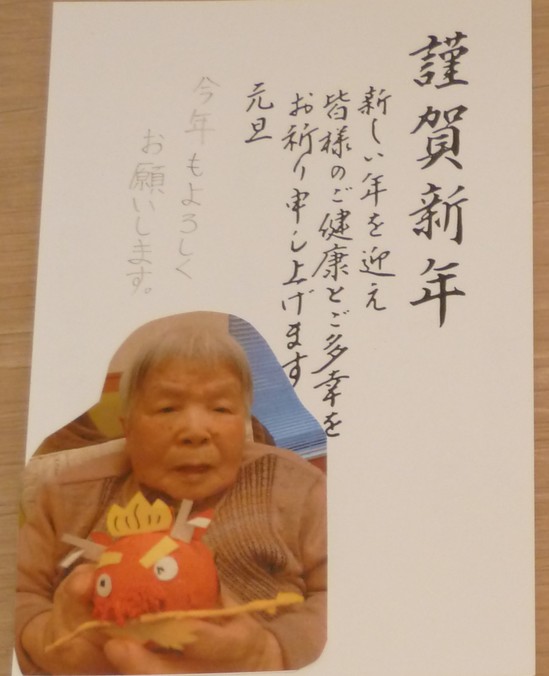 謹賀新年
新しい年を迎え
皆様のご健康とご多幸を
お祈り申し上げます
元旦
今年もよろしく
お願いします。